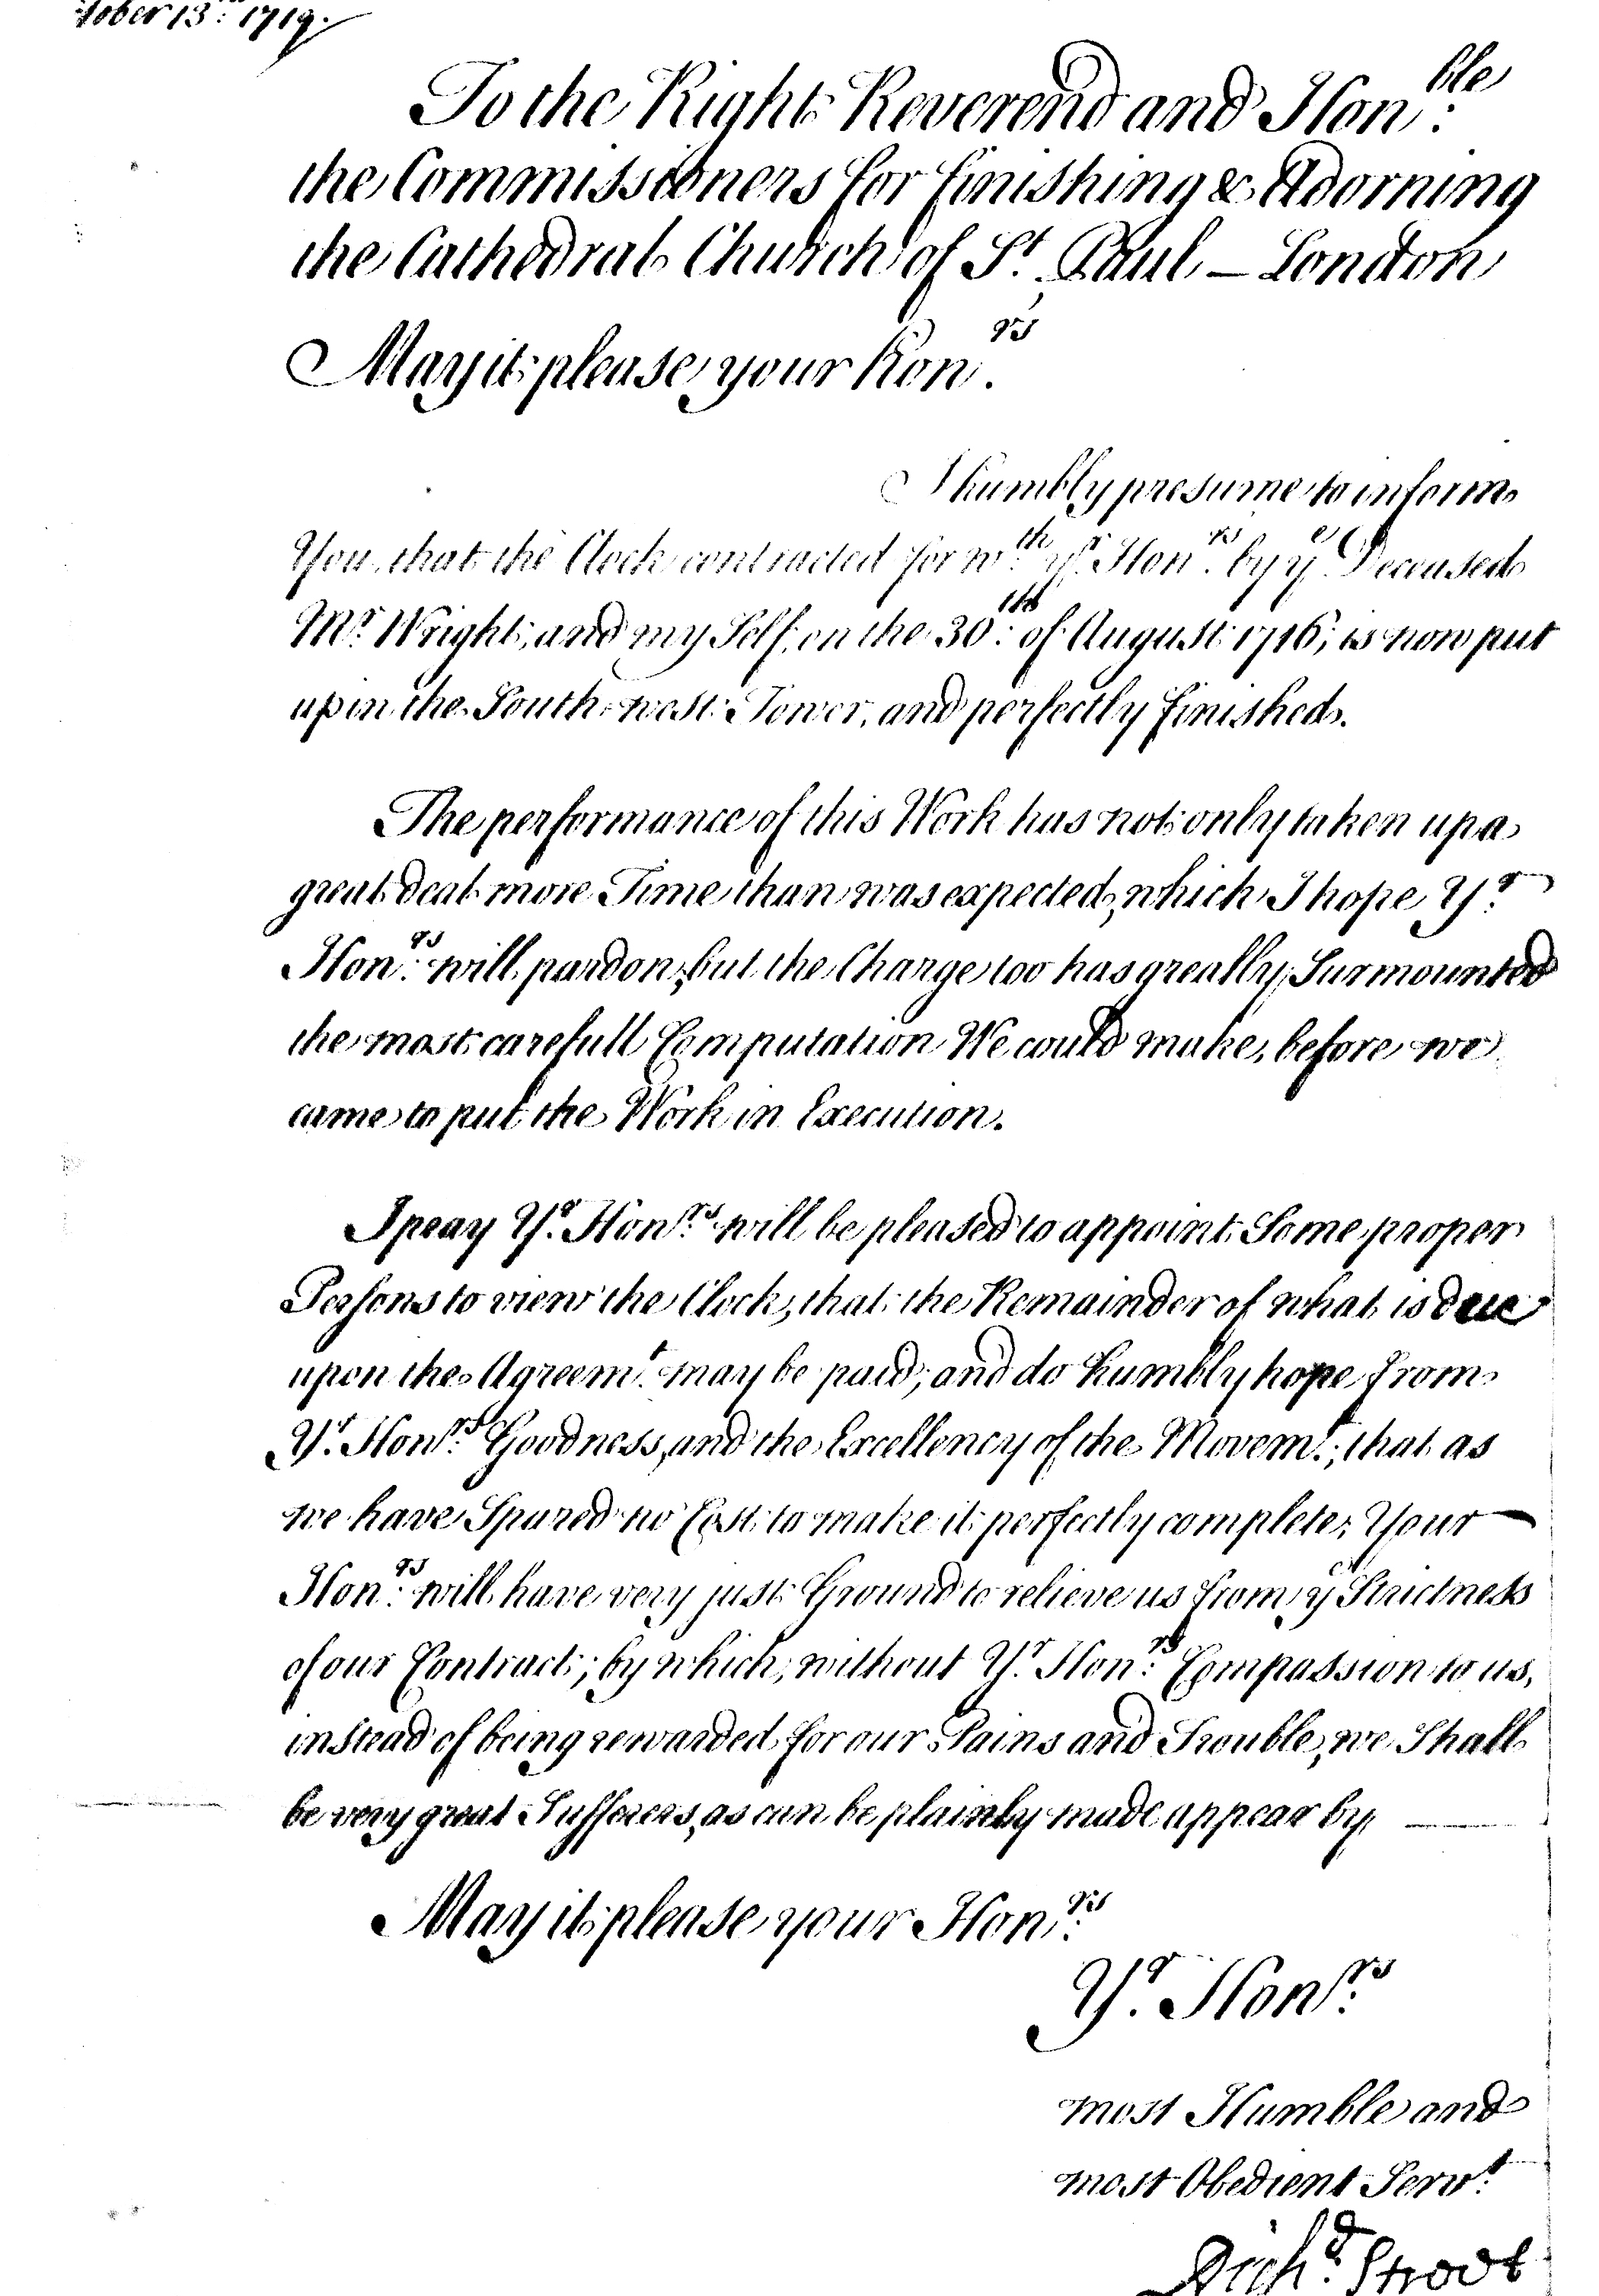 tober 13th: 1719.
To the Right Reverend and Hon:ble
the Commissioners for finishing & Adorning
the Cathedral Church of St. Paul – London
May it please your Hon.rs
I humbly presume to inform
You, that the Clock contracted for wth. yr. Honrs. by ye Deceased
Mr. Wright, and my Self, on the 30th: of August 1716, is now put
up in the South-west Tower, and perfectly finished.
The performance of this Work has not only taken up a
great deal more Time than was expected, which I hope Yr.
Honrs: will pardon, but the Charge too has greatly Surmounted
the most carefull Computation We could make, before we
came to put the Work in Execution.
I pray Yr. Honrs: will be pleased to appoint Some proper
Persons to view the Clock, that the Remainder of what is due
upon the Agreemt. may be paid; and do humbly hope from
Yr. Honrs: Goodness, and the Excellency of the Movemt.; that as
we have Spared no Cost to make it perfectly complete; Your
Honrs: will have very just Ground to relieve us from ye Strictness
of our Contract; by which, without Yr. Honrs: Compassion to us,
instead of being rewarded for our Pains and Trouble, we Shall
be very great Sufferers, as can be plainly made appear by
May it please your Honrs:
Yr. Honrs:
most Humble and
most Obedient Servt.
Richd: Street